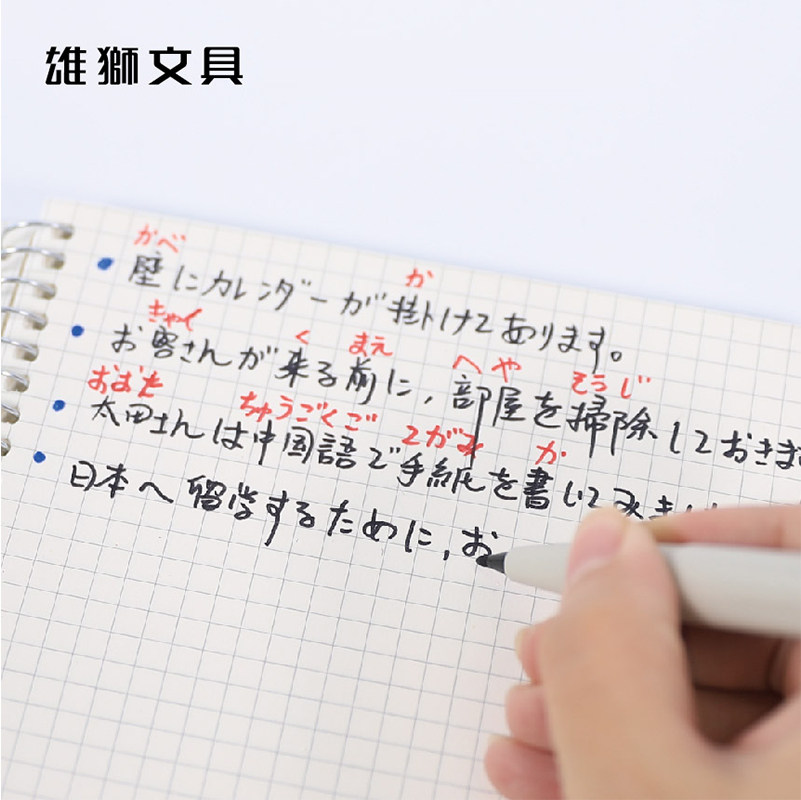 雄獅文具
かべ か
壁にカレンダーが掛けてあります。
きゃく く まえ へや そうじ
お客さんが来る前に,部屋を掃除しておきま
おおた ちゅうごくご てがみ か
太田さんは中国語で手紙を書いてみま
日本へ留学するために,お